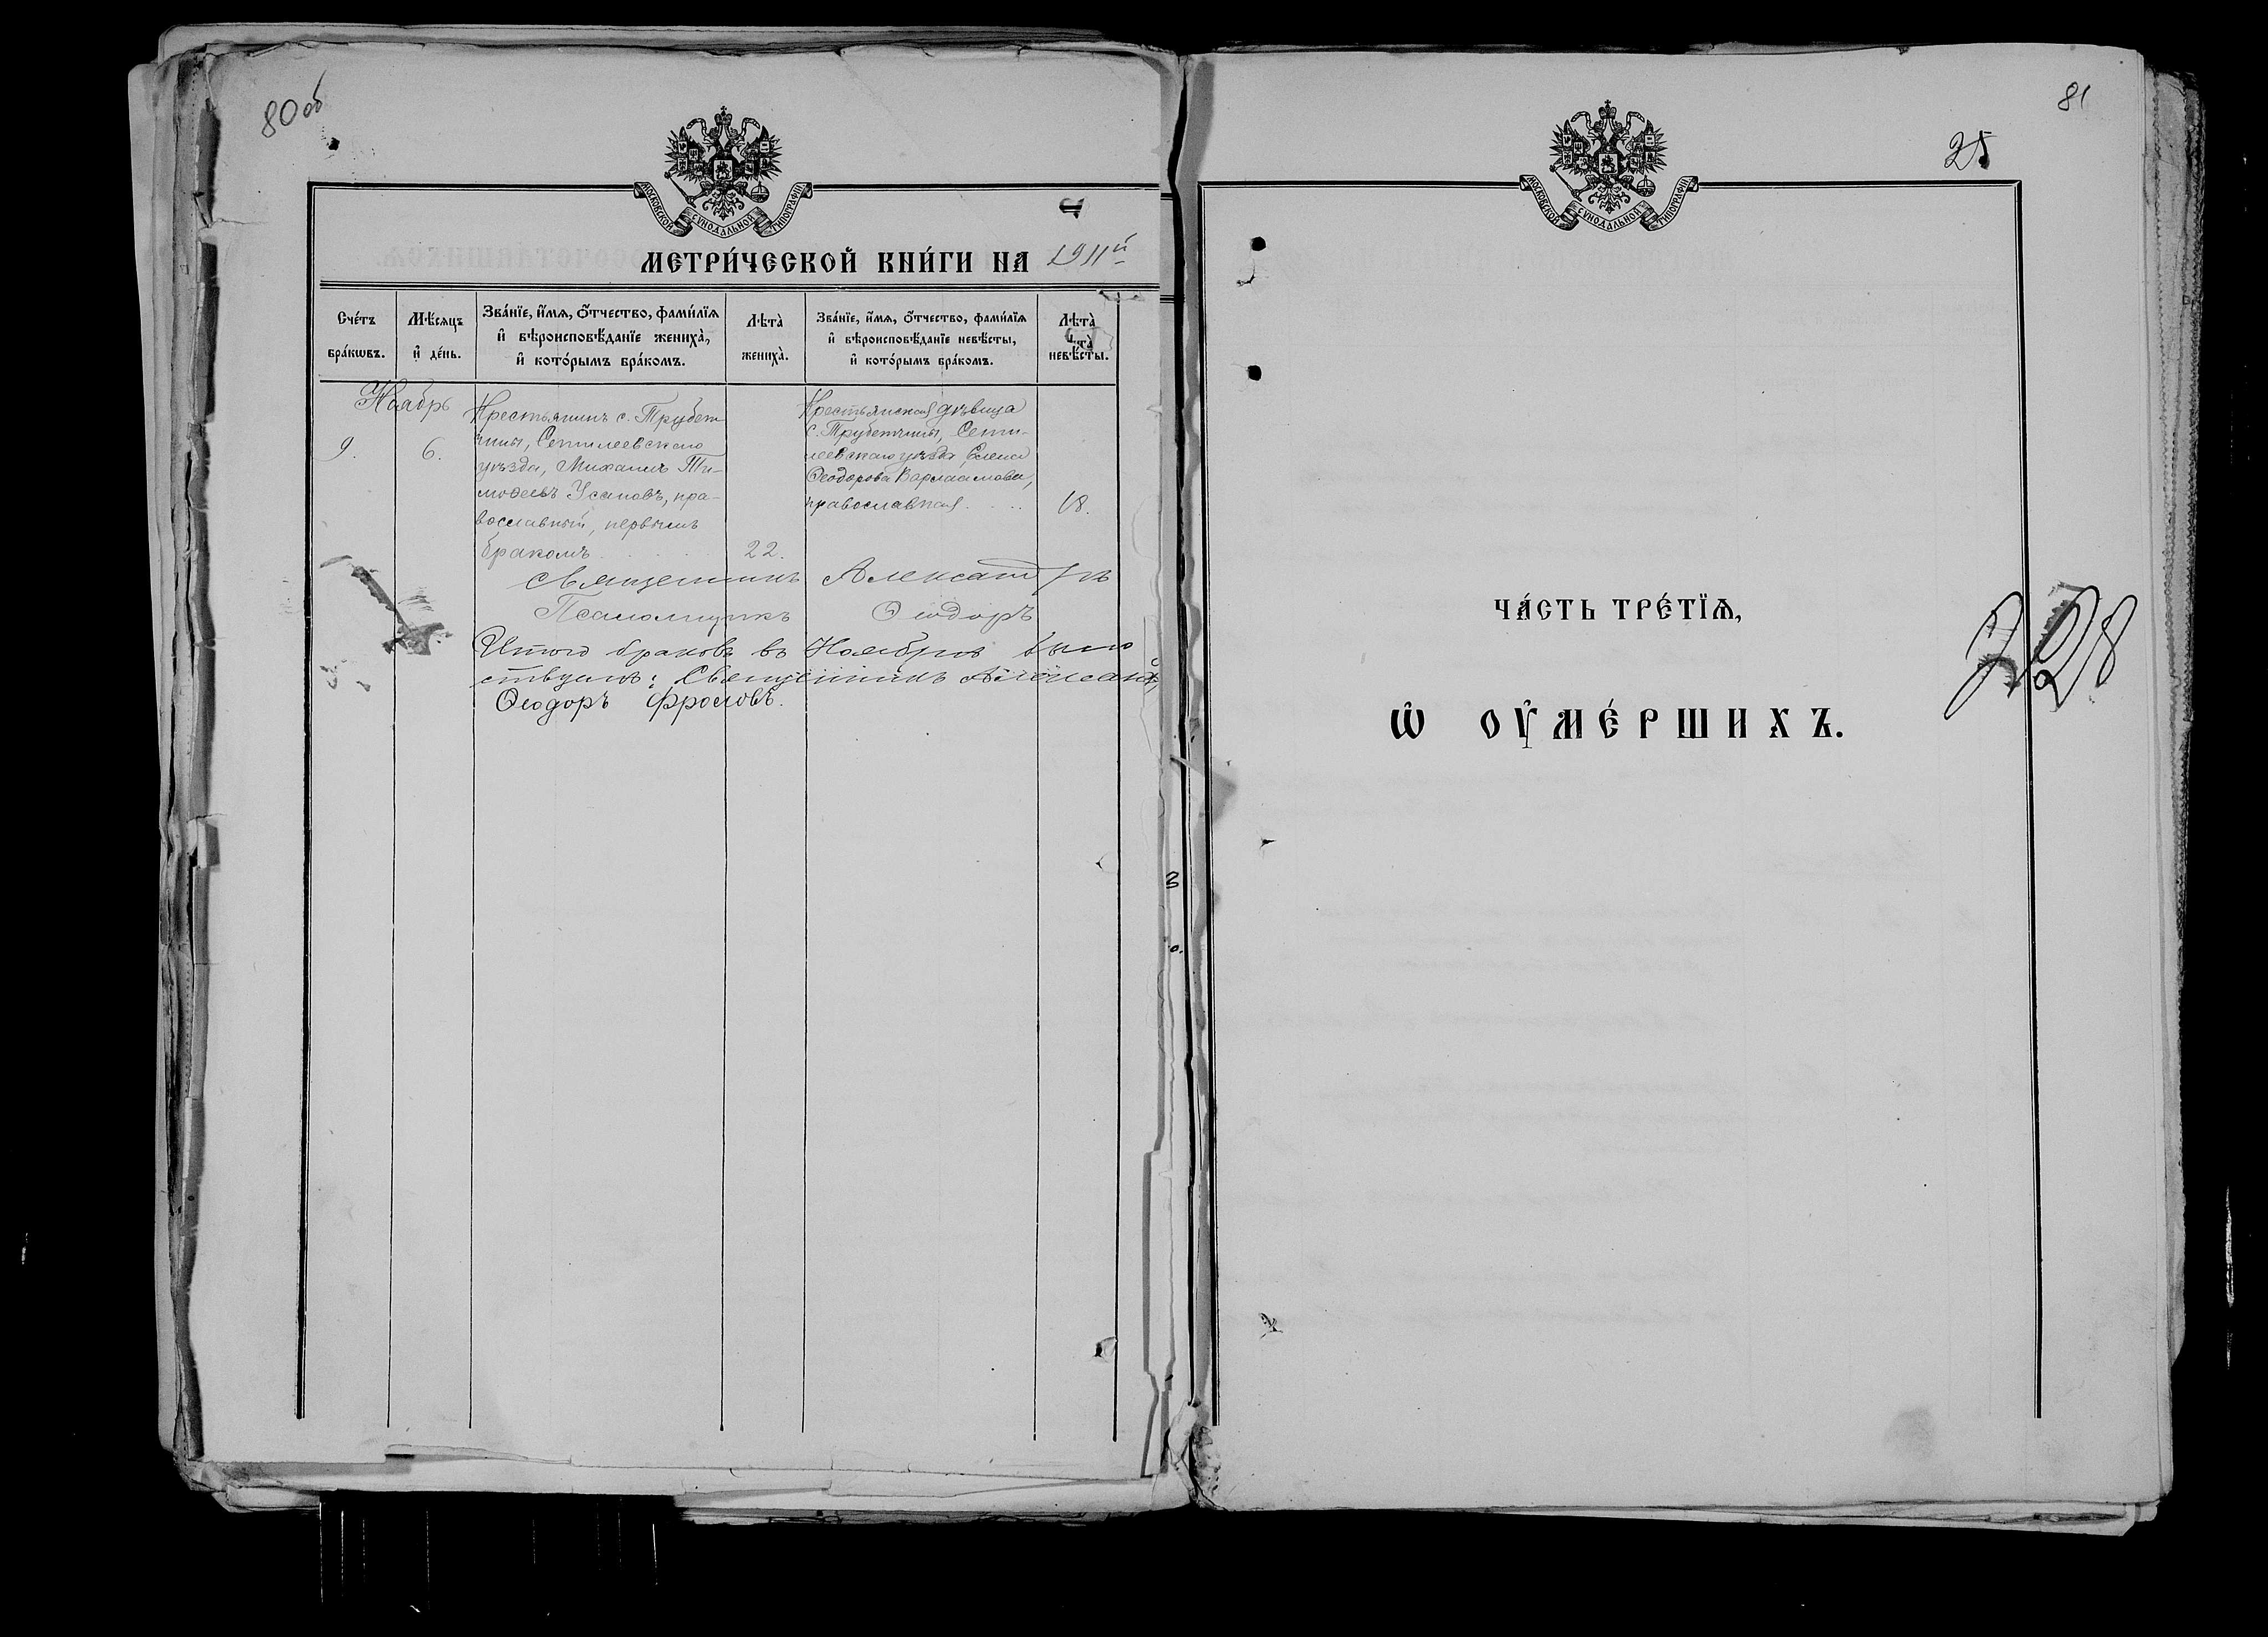 80 об
МОСКОВСКОЙ СѴНОДАЛЬНОЙ ТИПОГРАФІИ
МЕТРИ́ЧЕСКОЙ КНИ́ГИ НА 1911й
Сче́тъ бра́кѡвъ.
Мѣ́сяцъ и҆ де́нь.
Зва́нїе, и҆́мѧ, ѻ҆́тчество, фами́лїѧ
и҆ вѣроисповѣ́данїе жениха̀,
и҆ кото́рымъ бра́комъ.
Лѣта̀ жениха̀.
Зва́нїе, и҆́мѧ, ѻ҆́тчество, фами́лїѧ
и҆ вѣроисповѣ́данїе невѣ́сты,
и҆ кото́рымъ бра́комъ.
Лѣта̀ невѣ́сты.
Ноябрь
9.
6.
Крестьянинъ с. Трубет
чины, Сепилеевскаго
уѣзда, Михаилъ Ти-
моѳеевъ Усановъ, пра-
вославный, первымъ
бракомъ
22.
Крестьянская дѣвица
с. Трубетчины, Сепи-
леевскаго уѣзда Елена
Ѳеодорова Варлаамова,
православная
18.
Священникъ Александръ
Псаломщикъ Ѳеодоръ
Итого браковъ въ Ноябрѣ было
ствуемъ: Священникъ Александ
Ѳеодоръ Фроловъ.
81
25
МОСКОВСКОЙ СѴНОДАЛЬНОЙ ТИПОГРАФІИ
ЧА́СТЬ ТРЕ́ТЇѦ,
Ѡ҆ ОУ҆МЕ́РШИХЪ.
28